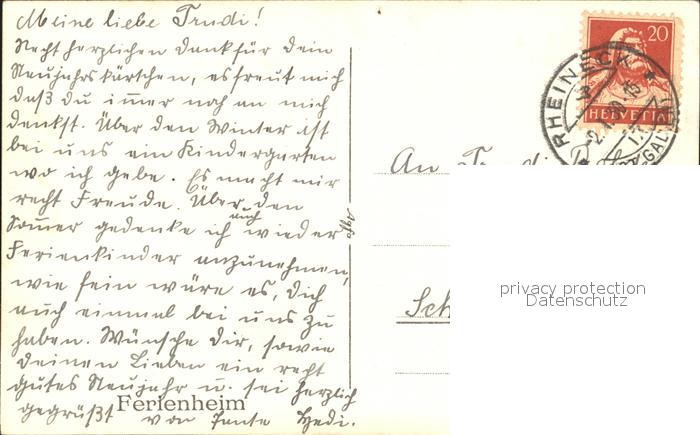 Meine liebe Trudi!
Recht herzlichen Dank für dein
Neujahrskärtchen, es freut mich
daß du immer noch an mich
denkst. Über den Winter ist
bei uns ein Kindergarten
wo ich gebe. Es macht mir
recht Freude. Über den
Sommer gedenke ich auch wieder
Ferienkinder anzunehmen,
wie fein wäre es, Dich
auch einmal bei uns zu
haben. Wünsche Dir, sowie
Deinen Lieben ein recht
gutes Neujahr u. sei herzlich
gegrüßt von Tante Hedi.
Ferienheim
Agfa
20
HELVETIA
RHEINECK
An Trudi
Sch
privacy protection
Datenschutz